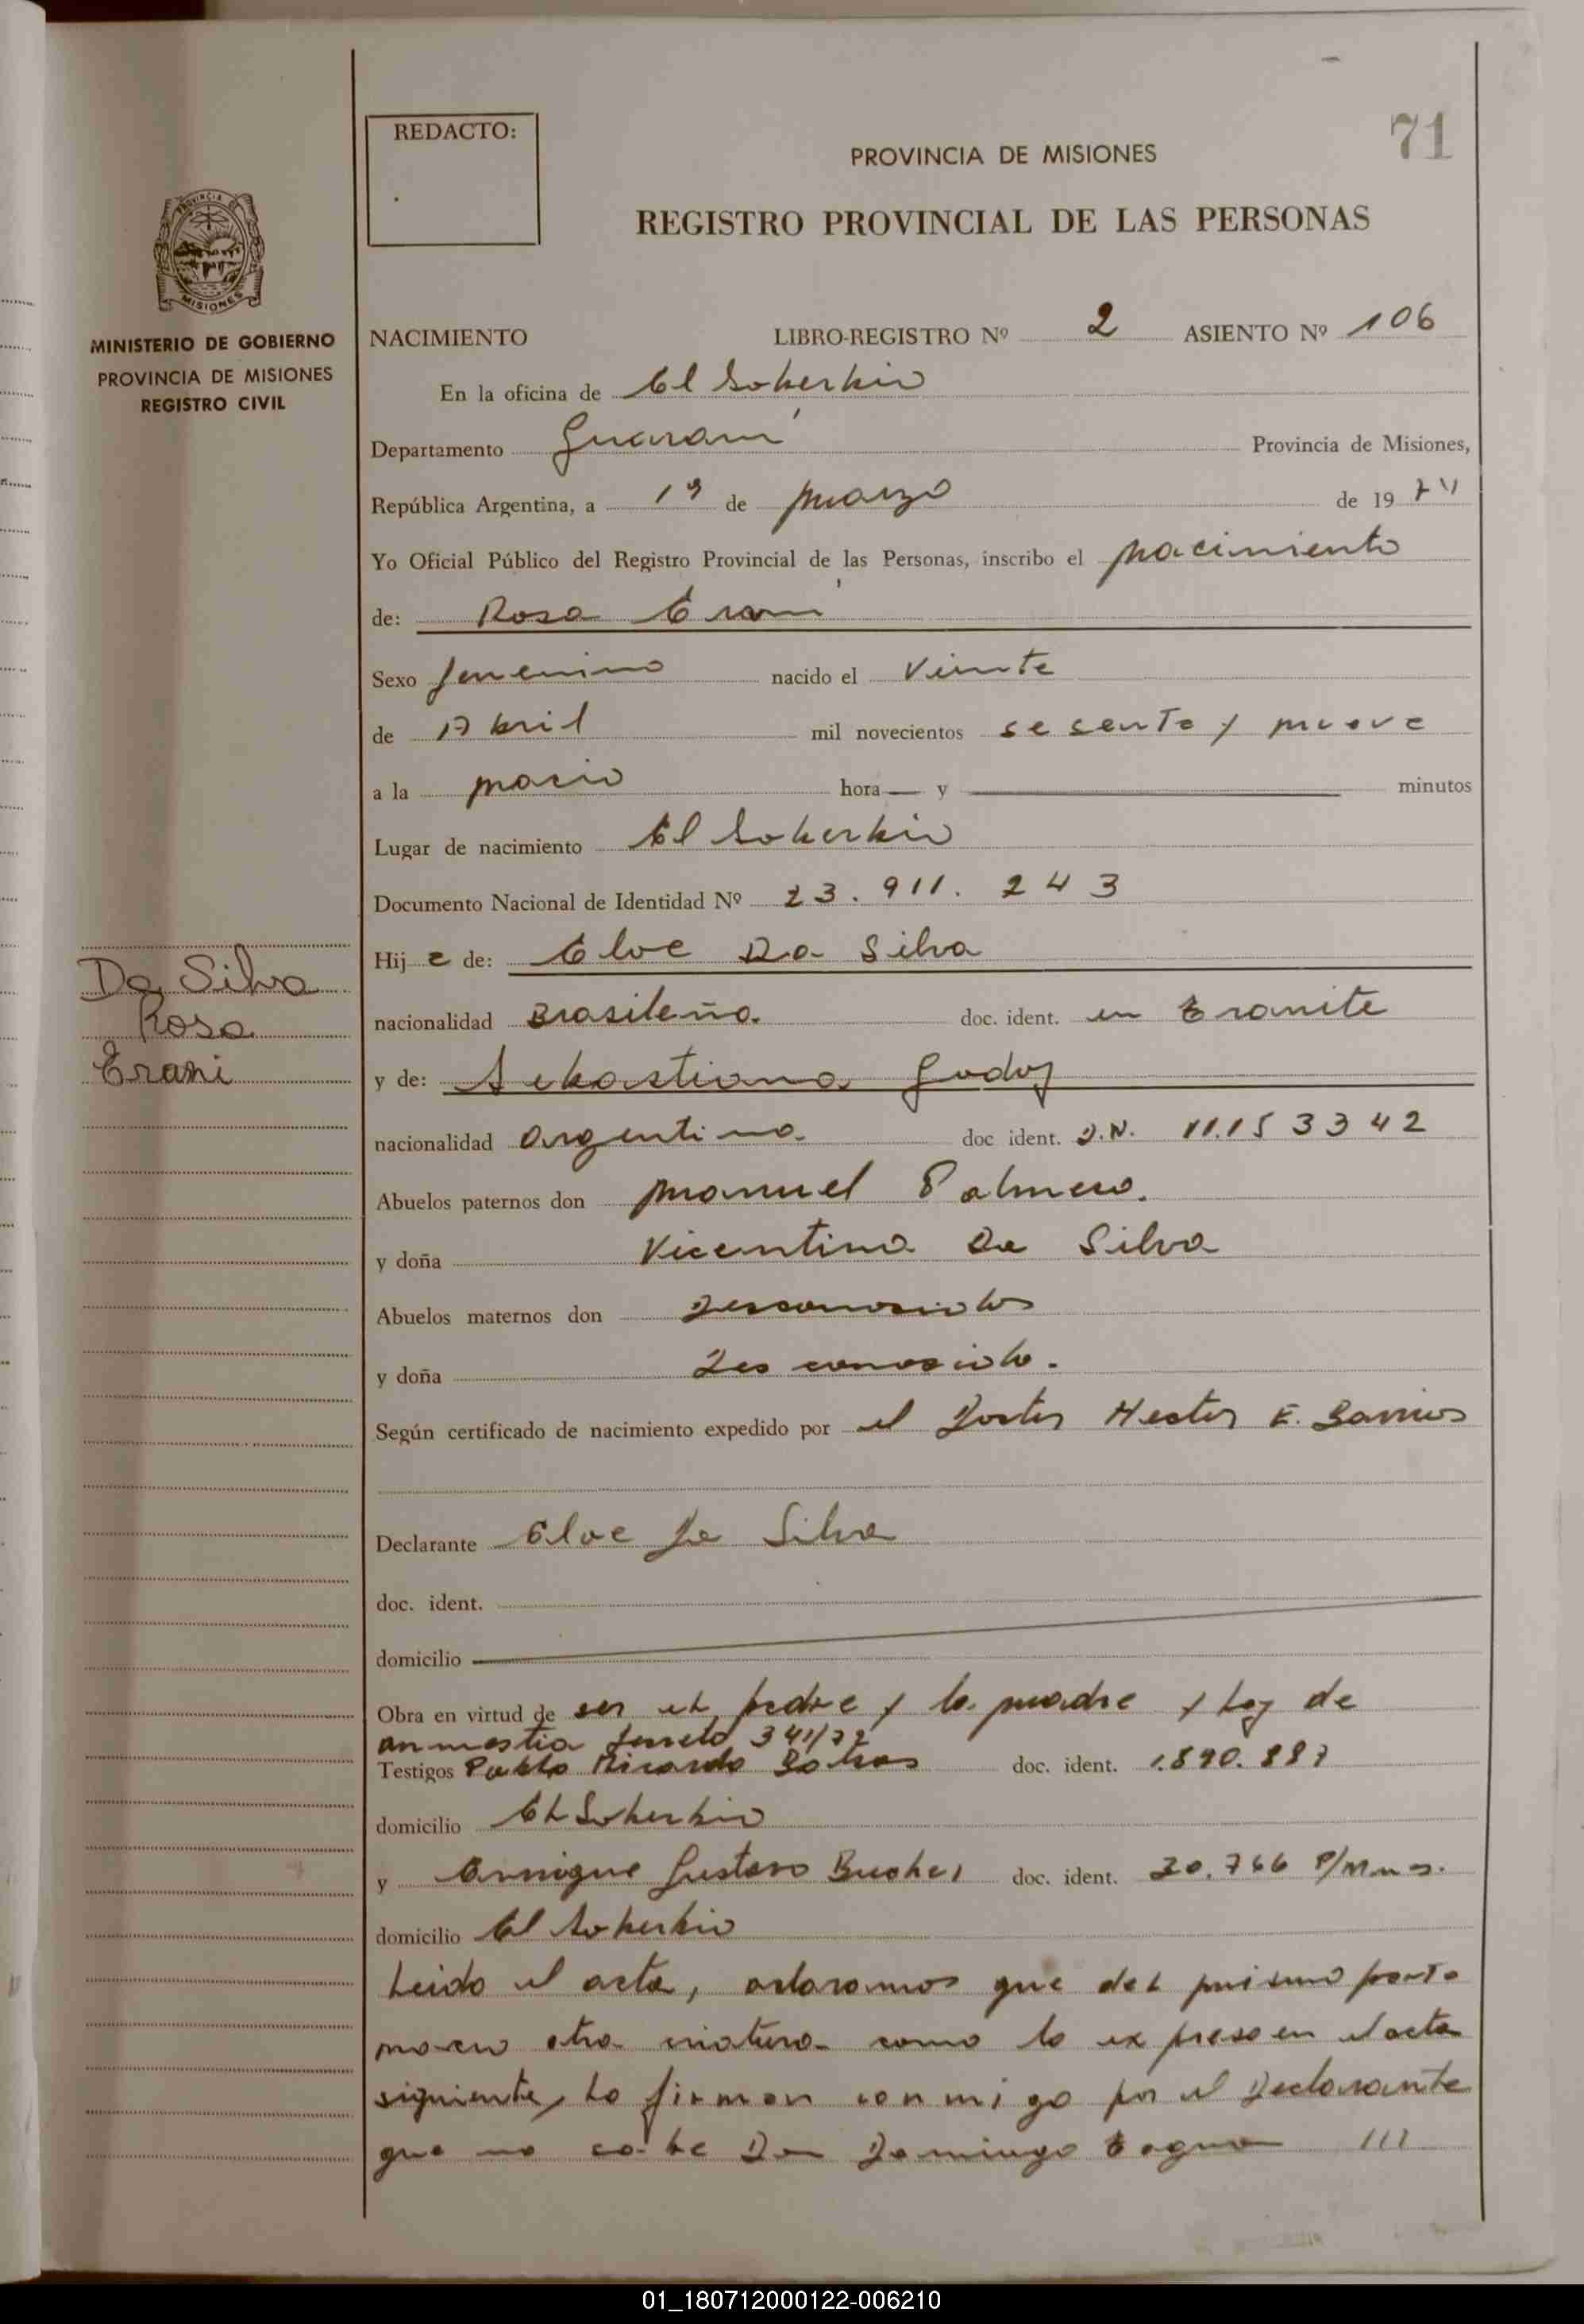 REDACTO:
71
PROVINCIA DE MISIONES
REGISTRO PROVINCIAL DE LAS PERSONAS
PROVINCIA DE
MISIONES
MINISTERIO DE GOBIERNO
PROVINCIA DE MISIONES
REGISTRO CIVIL
NACIMIENTO LIBRO-REGISTRO Nº 2 ASIENTO Nº 106
En la oficina de El Soberbio
Departamento Guaraní Provincia de Misiones,
República Argentina, a 1º de marzo de 1974
Yo Oficial Público del Registro Provincial de las Personas, inscribo el nacimiento
de: Rosa Erani
Sexo femenino nacido el Veinte
de Abril mil novecientos sesenta y nueve
a la nacio hora — y — minutos
Lugar de nacimiento El Soberbio
Documento Nacional de Identidad Nº 23.911.243
Hija de: Eloe Da Silva
nacionalidad Brasileña. doc. ident. en tramite
y de: Sebastiana Godoy
nacionalidad Argentina. doc ident. D.N. 11.153342
Abuelos paternos don Manuel Palmero.
y doña Vicentina Da Silva
Abuelos maternos don Desconosidos
y doña Desconosido.
Según certificado de nacimiento expedido por el Doctor Hector E. Barrios
Declarante Eloe Da Silva
doc. ident.
domicilio
Obra en virtud de ser el padre y la madre y Ley de
anmestia 341/72
Testigos Pablo Ricardo doc. ident. 1.890.887
domicilio El Soberbio
y Enrique Gustavo doc. ident. 20.766
domicilio El Soberbio
Leido el acta, aclaramos que del mismo parto
nacio otra criatura como lo expreso en el acta
siguiente, Lo firman conmigo por el Declarante
que no sabe Don Domingo
Da Silva
Rosa
Erani
01_180712000122-006210